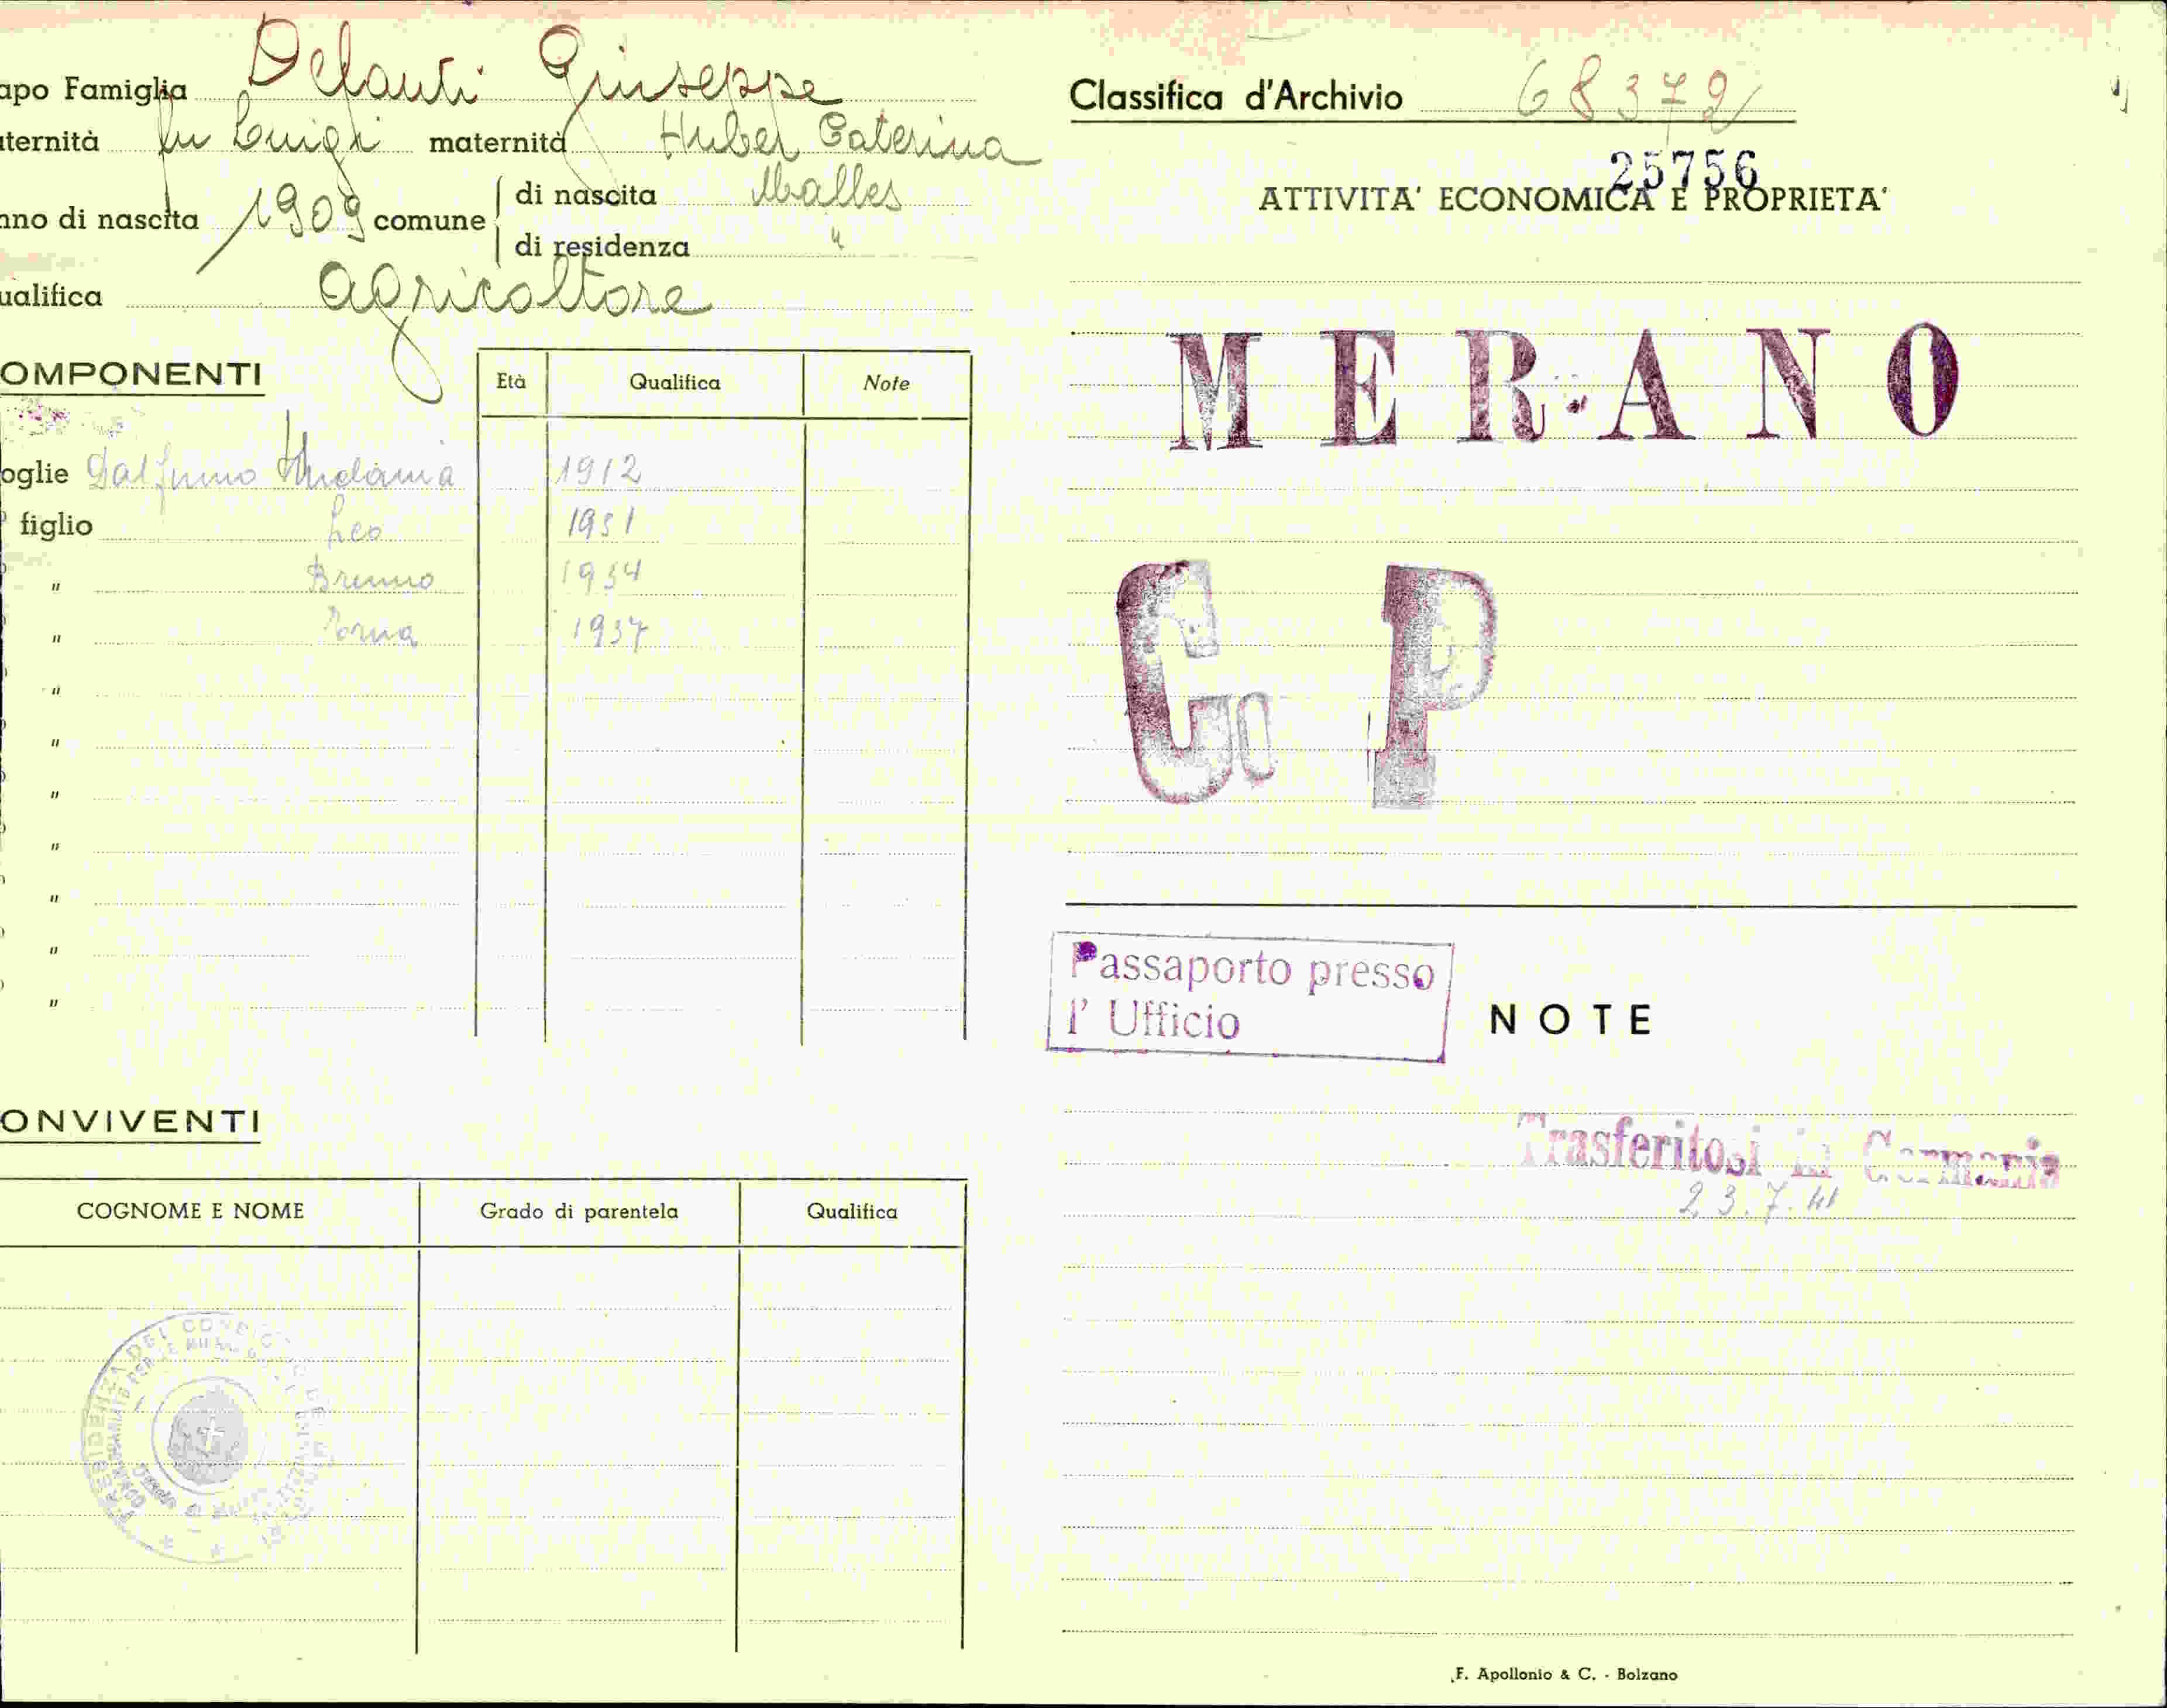 apo Famiglia Defanti Giuseppe
ternità fu Luigi maternità Huber Caterina
nno di nascita 1909 comune di nascita Malles
di residenza "
ualifica agricoltore
OMPONENTI
Età Qualifica Note
oglie 1912
figlio Leo 1931
" Bruno 1934
" 1937
"
"
"
"
"
"
"
ONVIVENTI
COGNOME E NOME Grado di parentela Qualifica
Classifica d'Archivio 68372
25756
ATTIVITA' ECONOMICA E PROPRIETA'
MERANO
C. P
Passaporto presso
l' Ufficio
NOTE
Trasferitosi in Germania
23.7.41
F. Apollonio & C. - Bolzano